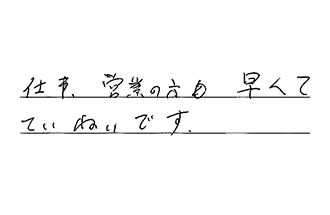 仕事、営業の方も 早くて
ていねいです.